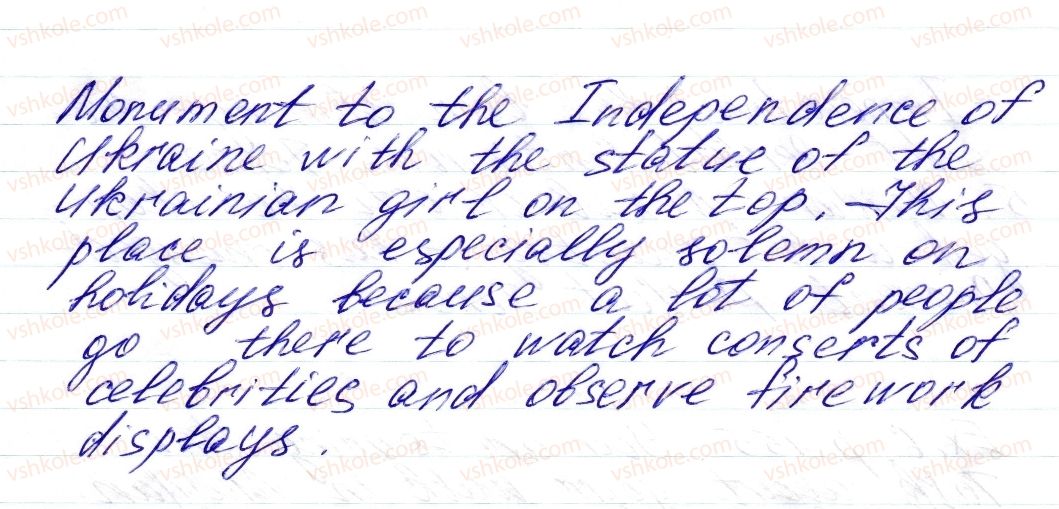 Monument to the Independence of
Ukraine with the statue of the
Ukrainian girl on the top. This
place is especially solemn on
holidays because a lot of people
go there to watch conserts of
celebrities and observe firework
displays.